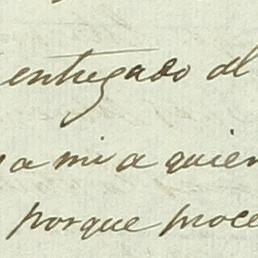 entregado al
a mi a quien
porque proce